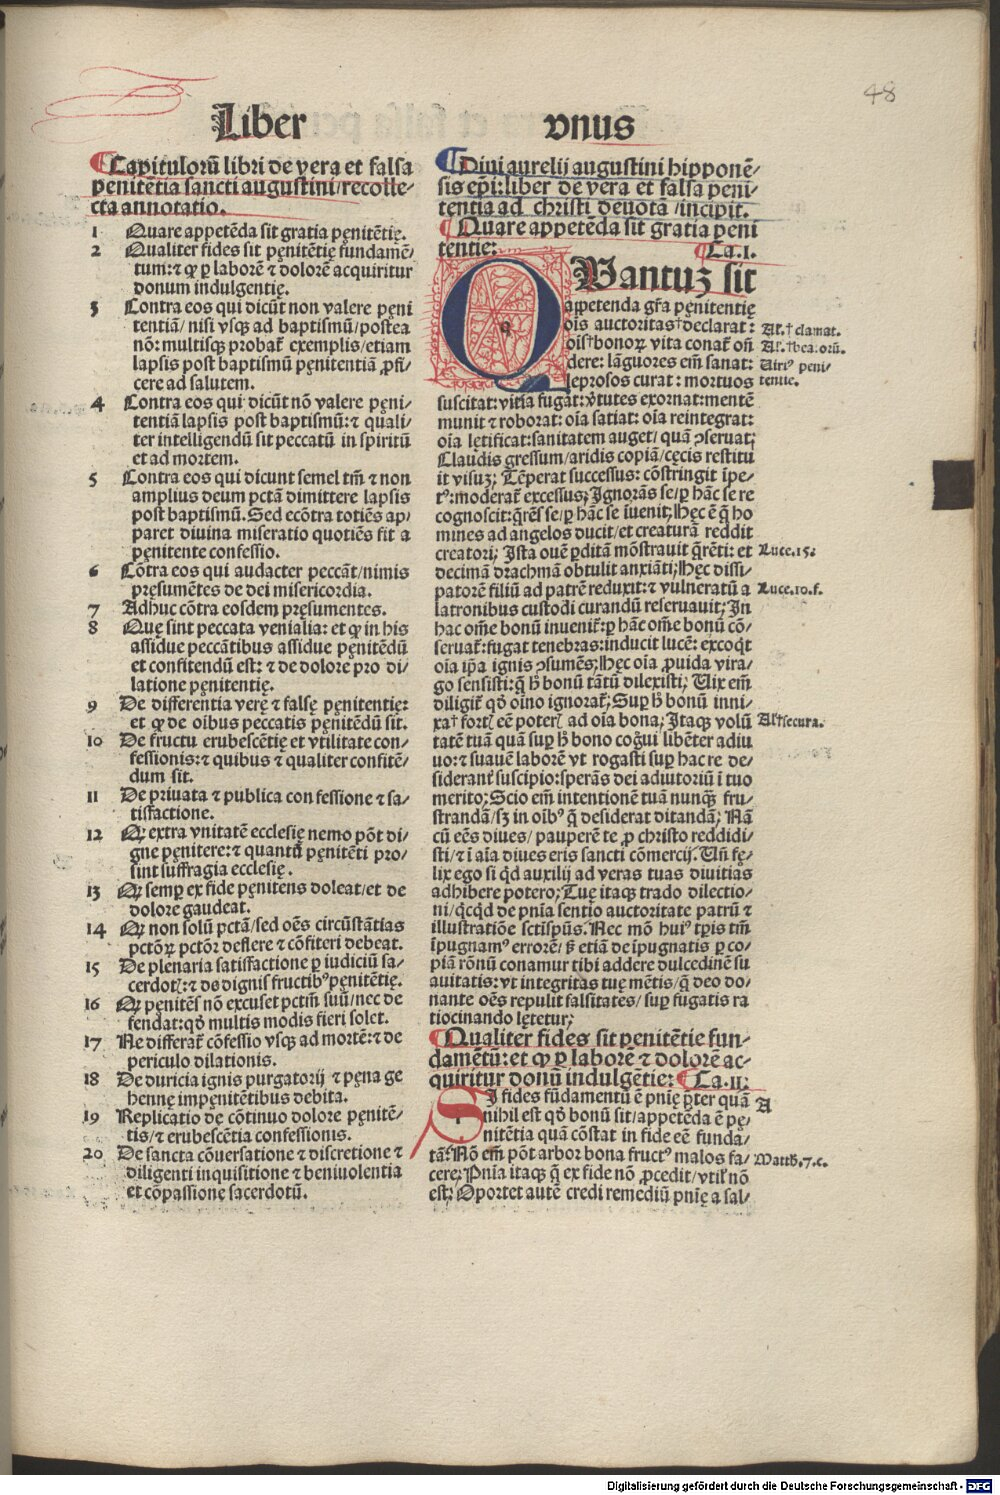 48
Liber vnus
¶Capitulorū libri de vera et falsa
penitētia sancti augustini/recolle-
cta annotatio.
1 Quare appetēda sit gratia pęnitētię.
2 Qualiter fides sit pęnitētię fundamē/
tum:⁊ ꝙ ꝑ laborē ⁊ dolorē acquiritur
donum indulgentię.
3 Contra eos qui dicūt non valere pęni
tentiā/ nisi vsqꝫ ad baptismū/postea
nō: multisqꝫ probat᷑ exemplis/etiam
lapsis post baptismū pęnitentiā ꝓfi/
cere ad salutem.
4 Contra eos qui dicūt nō valere pęni/
tentiā lapsis post baptismū:⁊ quali/
ter intelligendū sit peccatū in spiritū
et ad mortem.
5 Contra eos qui dicunt semel tm̄ ⁊ non
amplius deum pctā dimittere lapsis
post baptismū. Sed ecōtra totiēs ap/
paret divina miseratio quotiēs fit a
pęnitente confessio.
6 Cōtra eos qui audacter peccāt/nimis
pręsumētes de dei misericordia.
7 Adhuc cōtra eosdem pręsumentes.
8 Quę sint peccata venialia: et ꝙ in his
assidue peccātibus assidue pęnitēdū
et confitendū est: ⁊ de dolore pro di/
latione pęnitentię.
9 De differentia verę ⁊ falsę pęnitentię:
et ꝙ de oībus peccatis pęnitēdū sit.
10 De fructu erubescētię et vtilitate con/
fessionis:⁊ quibus ⁊ qualiter confitē/
dum sit.
11 De privata ⁊ publica confessione ⁊ sa/
tisfactione.
12 Ꝙ extra vnitatē ecclesię nemo pōt di/
gne pęnitere:⁊ quantū pęnitēti pro/
sint suffragia ecclesię.
13 Ꝙ semꝑ ex fide pęnitens doleat/et de
dolore gaudeat.
14 Ꝙ non solū pctā/sed oēs circūstātias
pctōꝝ pctōr deflere ⁊ cōfiteri debeat.
15 De plenaria satisfactione ꝑ iudiciū sa/
cerdotꝭ:⁊ de dignis fructibꝰ pęnitētię.
16 Ꝙ pęnitēs nō excuset pctm̄ suū/nec de
fendat:qđ multis modis fieri solet.
17 Ne differat᷑ cōfessio vsqꝫ ad mortē:⁊ de
periculo dilationis.
18 De duricia ignis purgatorij ⁊ pęna ge
hennę impęnitētibus debita.
19 Replicatio de cōtinuo dolore pęnitē/
tis/⁊ erubescētia confessionis.
20 De sancta cōuersatione ⁊ discretione ⁊
diligenti inquisitione ⁊ beniuolentia
et cōpassione sacerdotū.
¶Diui aurelij augustini hipponē/
sis ep̄i:liber de vera et falsa peni/
tentia ad christi deuotā /incipit.
¶Quare appetēda sit gratia pęni
tentie: ¶Ca.I.
QVantuꝫ sit
appetenda gr̄a pęnitentię
oīs auctoritas†declarat:
oīs†bonoꝝ vita conat᷑ oñ
dere: lāguores em̄ sanat:
leprosos curat: mortuos
suscitat: vitia fugat: v̄tutes exornat:mentē
munit ⁊ roborat: oīa satiat: oīa reintegrat:
oīa lętificat:sanitatem auget/ quā ꝯseruat;
Claudis gressum/aridis copiā/cęcis restitu
it visuꝫ; Tēperat successus: cōstringit īpe/
tꝰ:moderat᷑ excessus; Ignorās se/ꝑ hāc se re
cognoscit:q̄rēs se/ꝑ hāc se īuenit; Hęc ē q̄ ho
mines ad angelos ducit/et creaturā reddit
creatori; Ista ouē ꝑditā mōstrauit q̄rēti: et
decimā drachmā obtulit anxiāti; Hęc dissi/
patorē filiū ad patrē reduxit:⁊ vulneratū a
latronibus custodi curandū reseruauit; In
hac om̄e bonū inuenit᷑:ꝑ hāc om̄e bonū cō/
seruat᷑:fugat tenebras:inducit lucē: excoq̄t
oīa īpa ignis ꝯsumēs; Hęc oīa ꝓuida vira/
go sensisti: q̄ h̄ bonū tātū dilexisti; Uix em̄
diligit᷑ qđ oīno ignorat᷑; Suꝑ h̄ bonū inni/
xa† fortꝭ eē poterꝭ ad oīa bona; Itaqꝫ volū
tatē tuā quā suꝑ h̄ bono cog̃ui libēter adiu
uo:⁊ suauē laborē vt rogasti suꝑ hac re de/
siderant᷑ suscipio:sperās dei adiutoriū ī tuo
merito; Scio em̄ intentionē tuā nunqꝫ̄ fru/
strandā/sꝫ in oībꝰ q̄ desiderat ditandā; Nā
cū eēs diues/ pauperē te ꝓ christo reddidi/
sti/⁊ ī aīa diues eris sancti cōmercij. Uñ fę/
lix ego si q̇d auxilij ad veras tuas diuitias
adhibere potero; Tuę itaqꝫ trado dilectio/
ni/q̇cq̇d de pn̄ia sentio auctoritate patrū ⁊
illustratiōe sctīspūs. Nec mō huiꝰ tp̄is tm̄
īpugnamꝰ errorē/ ß etiā de īpugnatis ꝑ co/
piā rōnū conamur tibi addere dulcedinē su
auitatis: vt integritas tuę mētis/ q̄ deo do/
nante oēs repulit falsitates/ suꝑ fugatis ra
tiocinando lętetur;
¶Qualiter fides sit penitētie fun-
damētū:et ꝙ ꝑ laborē ⁊ dolorē ac-
quiritur donū indulgētie: ¶Ca.II:
SI fides fūdamentū ē pn̄ię p̄ter quā
nihil est qđ bonū sit/appetēda ē pę/
nitētia quā cōstat in fide eē funda/
tā: Nō em̄ pōt arbor bona fructꝰ malos fa/
cere; Pn̄ia itaqꝫ q̄ ex fide nō ꝓcedit/vtilꝭ nō
est; Oportet autē credi remediū pn̄ię a sal/
Al.† clamat.
Al.†beatorū.
Uiriꝰ peni/
tentie.
Luce.15:
Luce.10.f.
Al†secura.
A
Matth.7.c.
Digitalisierung gefördert durch die Deutsche Forschungsgemeinschaft - DFG